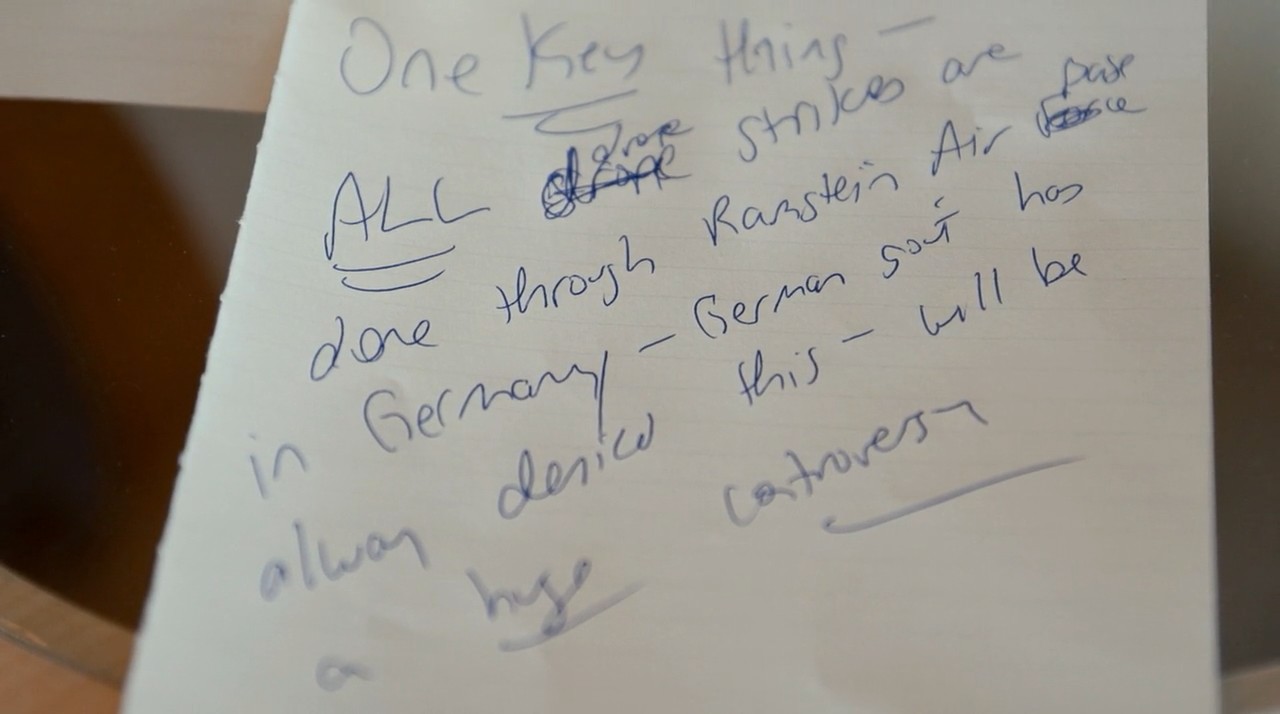 One Key thing -
ALL drone strikes are
done through Ramstein Air Base
in Germany - German gov't has
always denied this - will be
a huge controversy